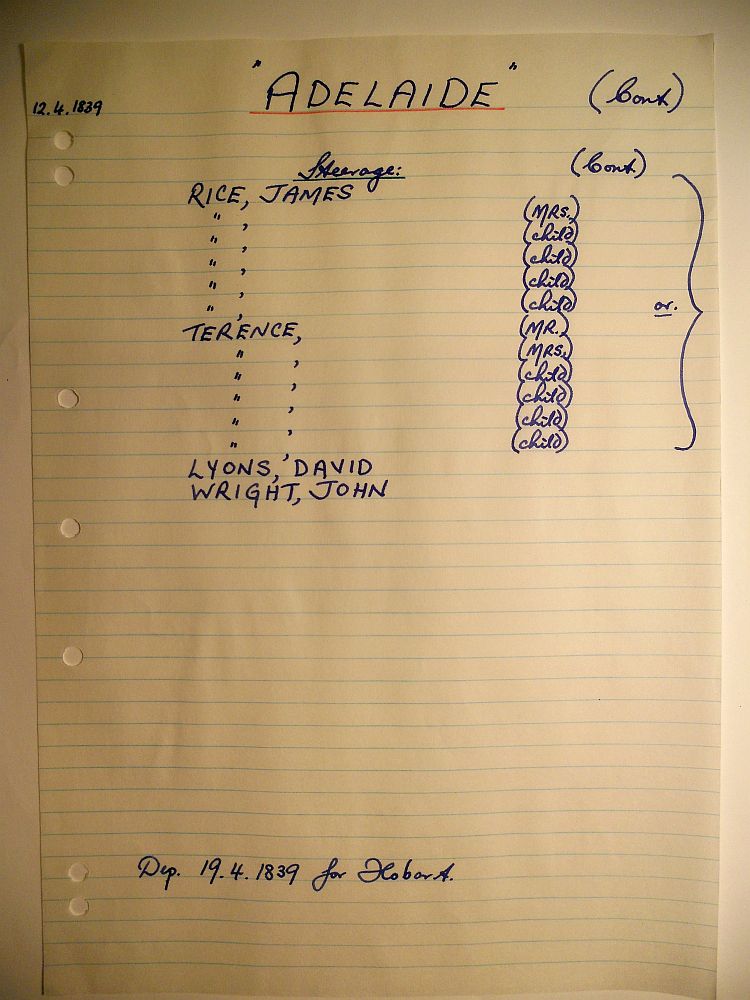 12.4.1839 "ADELAIDE" (Cont)
Steerage: (Cont.)
RICE, JAMES
" , (MRS.)
" , (child)
" , (child)
" , (child)
" , (child)
TERENCE, (MR.) or.
" , (MRS.)
" , (child)
" , (child)
" , (child)
" , (child)
LYONS, DAVID
WRIGHT, JOHN
Dep. 19.4.1839 for Hobart.